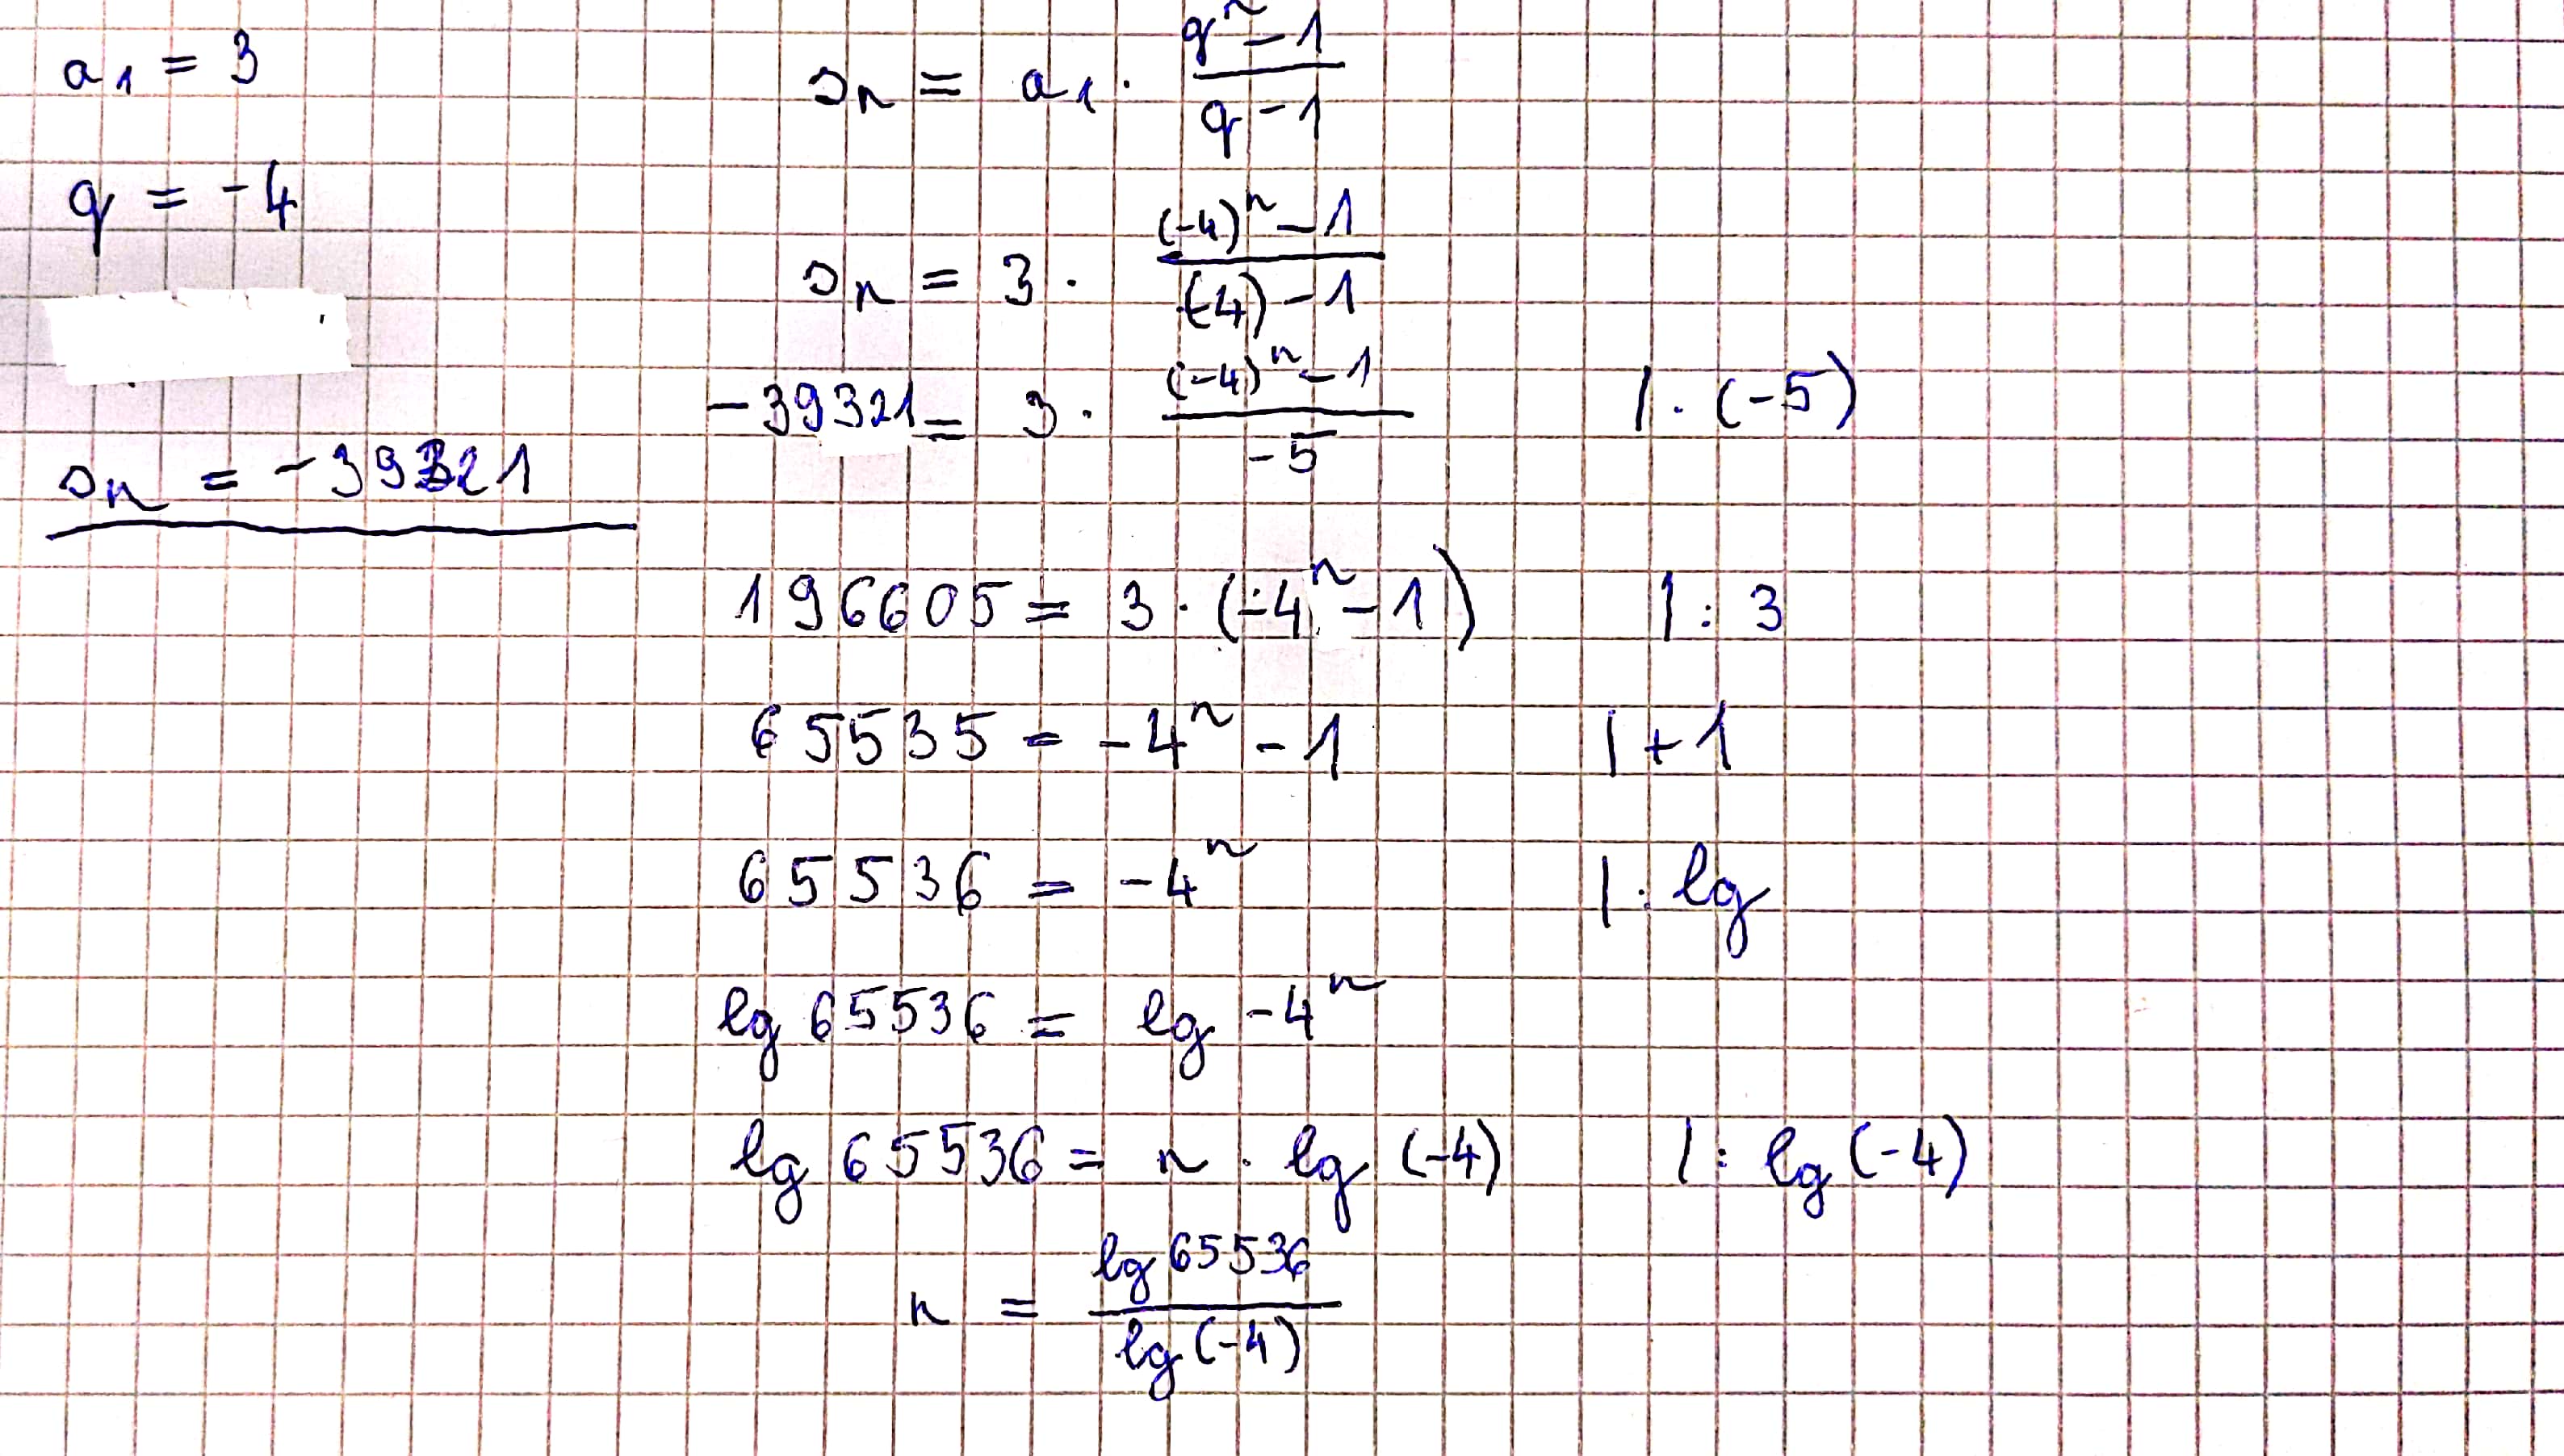 a₁ = 3
q = -4
sₙ = -39321
sₙ = a₁ · (qⁿ - 1) / (q - 1)
sₙ = 3 · ((-4)ⁿ - 1) / ((-4) - 1)
-39321 = 3 · ((-4)ⁿ - 1) / -5 | · (-5)
196605 = 3 · (-4ⁿ - 1) | : 3
65535 = -4ⁿ - 1 | + 1
65536 = -4ⁿ | : lg
lg 65536 = lg -4ⁿ
lg 65536 = n · lg (-4) | : lg (-4)
n = lg 65536 / lg (-4)